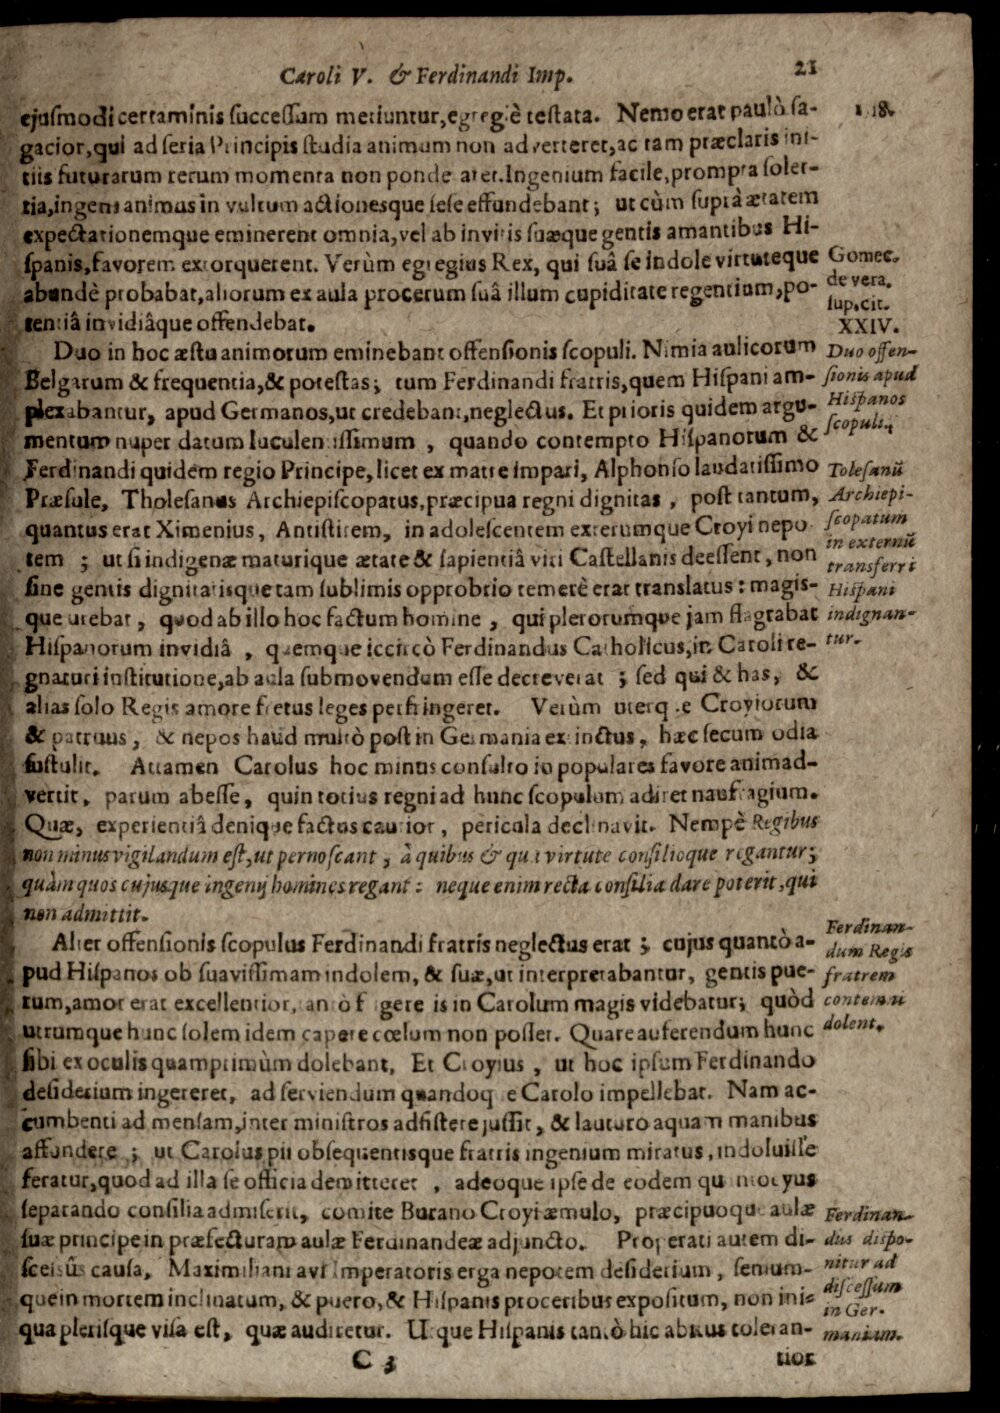 Caroli V. & Ferdinandi Imp. 21
ejuſmodi certaminis ſucceſſum metiuntur, egregiè teſtata. Nemo erat paulò ſa-
gacior, qui ad ſeria Principis ſtudia animum non adverteret, ac tam præclaris ini-
tiis futurarum rerum momenta non ponderaret. Ingenium facile, prompta ſoler-
tia, ingens animus in vultum actionesque ſeſe effundebant; ut cùm ſupra ætatem
expectationemque eminerent omnia, vel ab invitis ſuæque gentis amantibus Hi-
ſpanis, favorem extorquerent. Verùm egregius Rex, qui ſuâ ſe indole virtuteque
abundè probabat, aliorum ex aula procerum ſuâ illum cupiditate regentium, po-
tentiâ invidiâque offendebat.
Duo in hoc æſtu animorum eminebant offenſionis ſcopuli. Nimia aulicorum
Belgarum & frequentia, & poteſtas; tum Ferdinandi fratris, quem Hiſpani am-
plexabantur, apud Germanos, ut credebant, neglectus. Et prioris quidem argu-
mentum nuper datum luculentiſſimum, quando contempto Hiſpanorum &
Ferdinandi quidem regio Principe, licet ex matre impari, Alphonſo laudatiſſimo
Præſule, Tholeſanus Archiepiſcopatus, præcipua regni dignitas, poſt tantum,
quantus erat Ximenius, Antiſtitem, in adoleſcentem exterumque Croyi nepo
tem; ut ſi indigenæ maturique ætate & ſapientiâ viri Caſtellanis deeſſent, non
ſine gentis dignitatisque tam ſublimis opprobrio temerè erat translatus: magis-
que urebat, quod ab illo hoc factum homine, qui plerorumque jam flagrabat
Hiſpanorum invidiâ, quemque iccircò Ferdinandus Catholicus, in Caroli re-
gnaturi inſtitutione, ab aula ſubmovendum eſſe decreverat; ſed qui & has, &
alias ſolo Regis amore fretus leges perfringeret. Verùm uterque Croyiorum
& patruus, & nepos haud multò poſt in Germania extinctus, hæc ſecum odia
ſuſtulit. Attamen Carolus hoc minus conſulto in populares favore animad-
vertit, parum abeſſe, quin totius regni ad hunc ſcopulum adiret naufragium.
Quæ, experientiâ denique factus cautior, pericula declinavit. Nempè Regibus
non minus vigilandum eſt, ut pernoſcant, à quibus & qua virtute conſilioque regantur;
quàm quos cujusque ingenij homines regant: neque enim recta conſilia dare poterit, qui
non admittit.
Alter offenſionis ſcopulus Ferdinandi fratris neglectus erat; cujus quantò a-
pud Hiſpanos ob ſuaviſſimam indolem, & ſuæ, ut interpretabantur, gentis pue-
rum, amor erat excellentior, tantò frigere is in Carolum magis videbatur; quòd
utrumque hunc ſolem idem capere cœlum non poſſet. Quare auferendum hunc
ſibi ex oculis quamprimùm dolebant. Et Croyius, ut hoc ipſum Ferdinando
deſiderium ingereret, ad ſerviendum quandoque Carolo impellebat. Nam ac-
cumbenti ad menſam, inter miniſtros adſiſtere juſſit, & lauturo aquam manibus
affundere; ut Carolus pii obſequentisque fratris ingenium miratus, indoluiſſe
feratur, quod ad illa ſe officia demitteret, adeoque ipſe de eodem quamocyus
ſeparando conſilia admiſerit, comite Burano Croyi æmulo, præcipuoque aulæ
ſuæ principe in præfecturam aulæ Ferdinandeæ adjuncto. Properati autem di-
ſceſsûs cauſa, Maximiliani avi Imperatoris erga nepotem deſiderium, ſenium-
que in mortem inclinatum, & puero, & Hiſpanis proceribus expoſitum, non ini-
qua plerisque viſa eſt, quæ audiretur. Utque Hiſpanis tantò hic abitus toleran-
C 3 tior
Gomec.
de vera.
ſup. cit.
XXIV.
Duo offen-
ſionis apud
Hiſpanos
ſcopuli.
Toleſanũ
Archiepi-
ſcopatum
in externũ
transferri
Hiſpani
indignan-
tur.
Ferdinan-
dum Regis
fratrem
contemni
dolent.
Ferdinan-
dus diſpo-
nitur ad
diſceſſum
in Ger-
maniam.